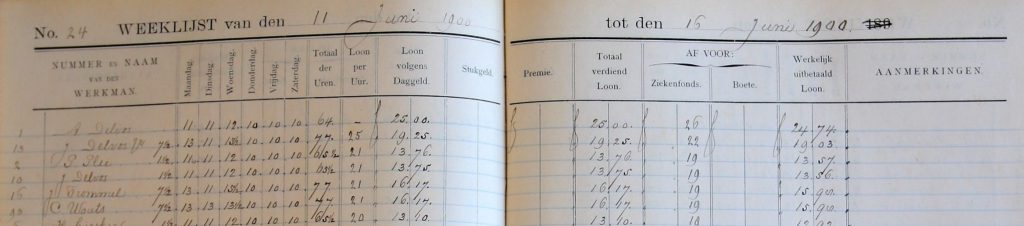 No. 24 WEEKLIJST van den 11 Juni 1900 tot den 16 Juni 1900. 189
NUMMER EN NAAM VAN DEN WERKMAN. Maandag. Dinsdag. Woensdag. Donderdag. Vrijdag. Zaterdag. Totaal der Uren. Loon per Uur. Loon volgens Daggeld. Stukgeld. Premie. Totaal verdiend Loon. AF VOOR: Ziekenfonds. Boete. Werkelijk uitbetaald Loon. AANMERKINGEN.
1 A Delvos 11 11 12 10 10 10 64 – 25.00. 25.00. 26 24.74.
13 J Delvos 7½ 13 11 13½ 10 10 10 77 25 19.25. 19.25. 22 19.03.
2 P. Plee 1½ 11 11 12 10 10 10 65½ 21 13.76. 13.76. 19 13.57.
10 J Delvos 1½ 11 11 12 10 10 10 21 13.75 13.75 19 13.56.
16 Trommel 7½ 13 11 13½ 10 10 10 77 21 16.17. 16.17. 19 15.98.
C Wouts 7½ 13 13 13½ 10 10 10 77 21 16.17. 16.17. 19
11 11 12 10 10 10 65½ 20 13.10. 13.10 19